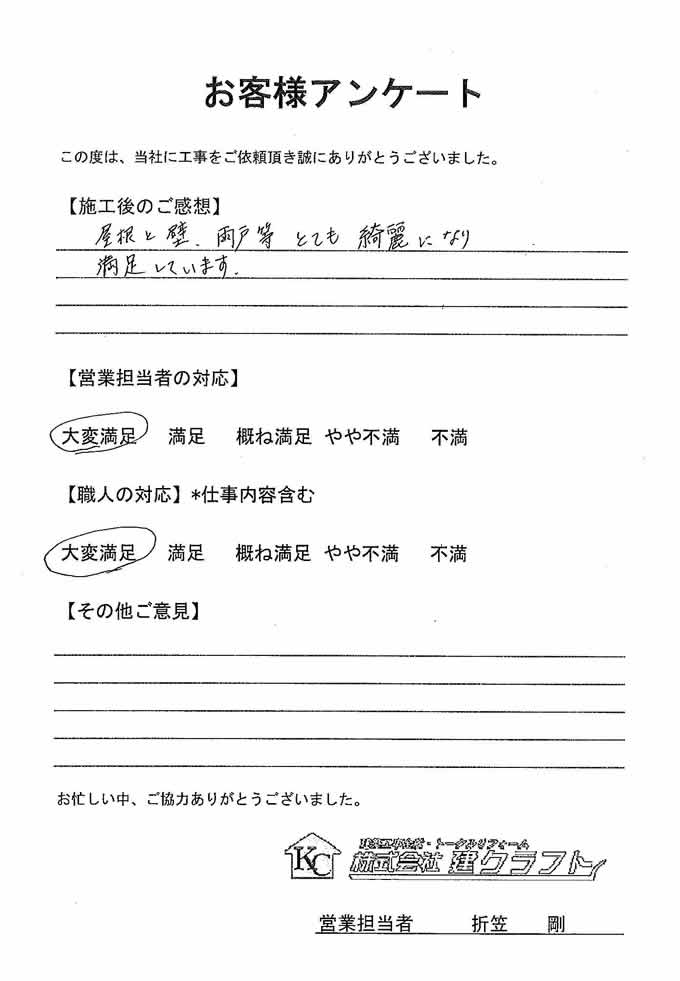 お客様アンケート
この度は、当社に工事をご依頼頂き誠にありがとうございました。
【施工後のご感想】
屋根と壁、雨戸等 とても 綺麗に なり
満足しています.
【営業担当者の対応】
大変満足 満足 概ね満足 やや不満 不満
【職人の対応】*仕事内容含む
大変満足 満足 概ね満足 やや不満 不満
【その他ご意見】
お忙しい中、ご協力ありがとうございました。
・トータルリフォーム
KC 株式会社 建クラフト
営業担当者 折笠 剛